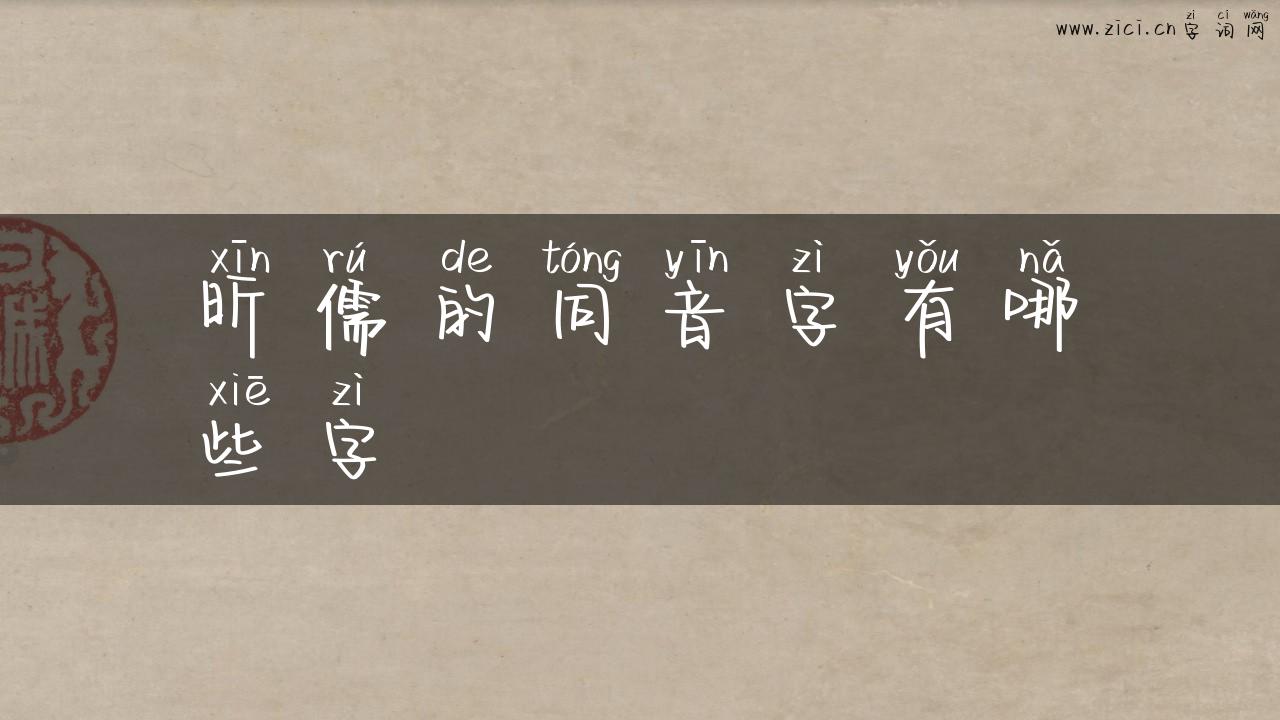 zì cí wǎng
www.zici.cn 字词网
xīn rú de tóng yīn zì yǒu nǎ
昕儒的同音字有哪
xiē zì
些字